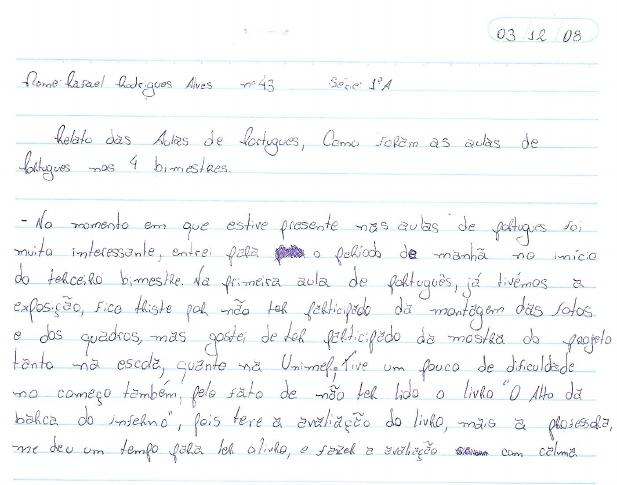 03 12 08
Nome: Rafael Rodrigues Alves nº 43 Série: 1ºA
Relato das Aulas de Português, Como foram as aulas de
Português nos 4 bimestres.
- No momento em que estive presente nas aulas de português foi
muito interessante, entrei para o período de manhã no início
do terceiro bimestre. Na primeira aula de português, já tivémos a
exposição, fico triste por não ter participado da montagem das fotos
e dos quadros, mas gostei de ter participado da mostra do projeto
tanto na escola, quanto na Unimep, Tive um pouco de dificuldade
no começo também, pelo fato de não ter lido o livro "O Alto da
barca do inferno", pois teve a avaliação do livro, mais a professora,
me deu um tempo para ler o livro, e fazer a avaliação com calma